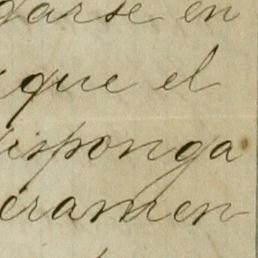 garse en
que el
isponga
eramen-